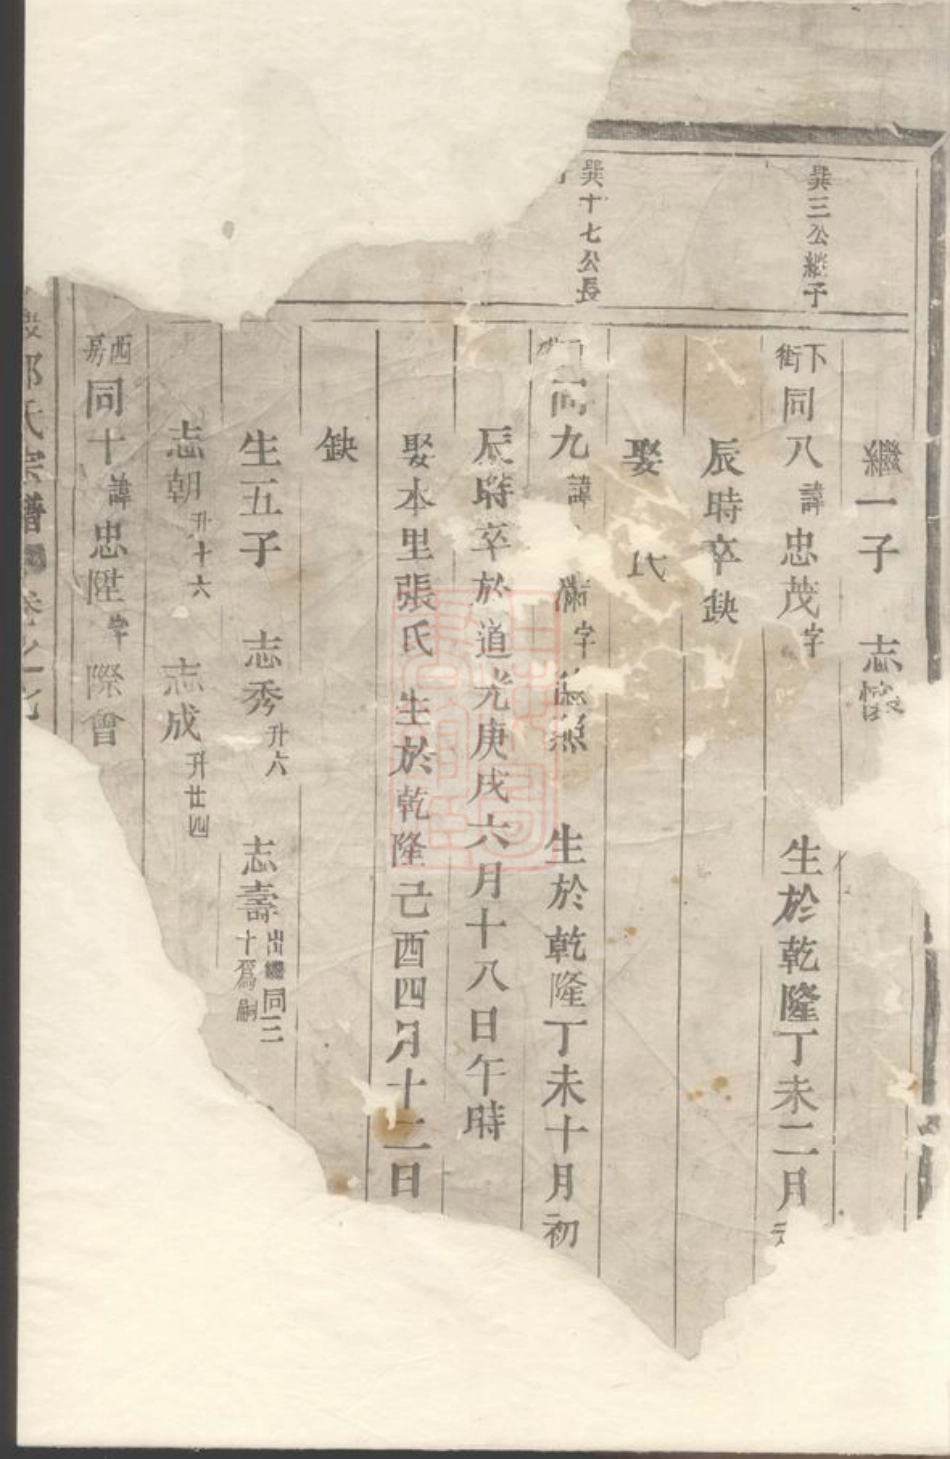 巽三公繼子
巽十七公長
繼一子 志懷
下街同八諱忠茂字 生於乾隆丁未二月
辰時卒缺
娶 氏
同九諱 字 生於乾隆丁未十月初
辰時卒於道光庚戌六月十八日午時
娶本里張氏 生於乾隆己酉四月十二日
缺
生五子 志秀升六 志壽出繼同三十爲嗣
志朝升十六 志成升廿四
西房同十諱忠陞字際會
氏宗譜 卷之